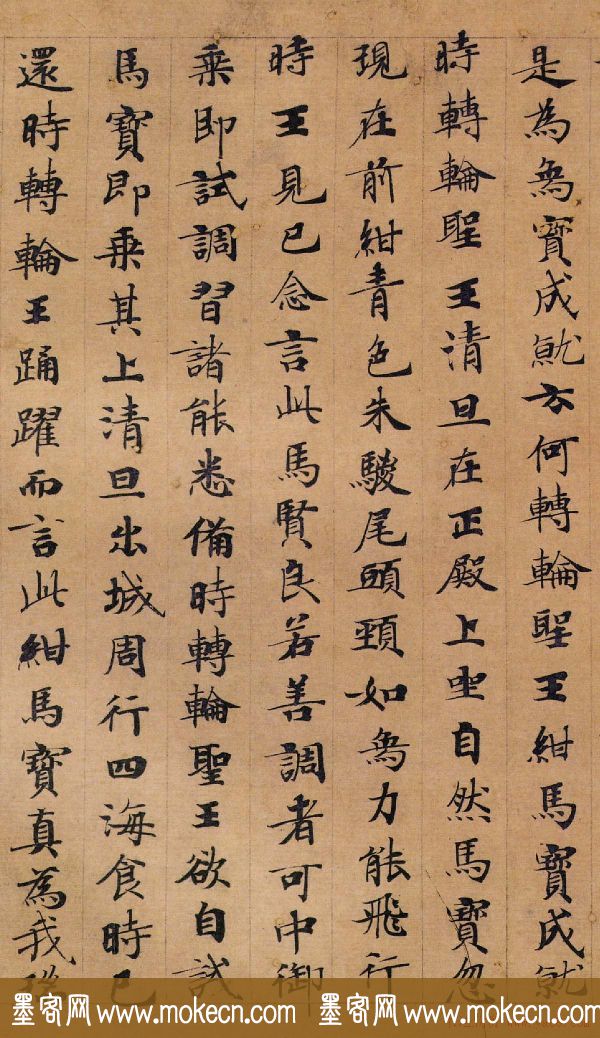 是為象寶成就云何轉輪聖王紺馬寶成就
時轉輪聖王清旦在正殿上坐自然馬寶忽
現在前紺青色朱騣尾頭頸如象力能飛行
時王見已念言此馬賢良若善調者可中御
乘即試調習諸能悉備時轉輪聖王欲自試
馬寶即乘其上清旦出城周行四海食時已
還時轉輪王踊躍而言此紺馬寶真為我
墨客网 www.mokecn.com 墨客网 www.mokecn.com